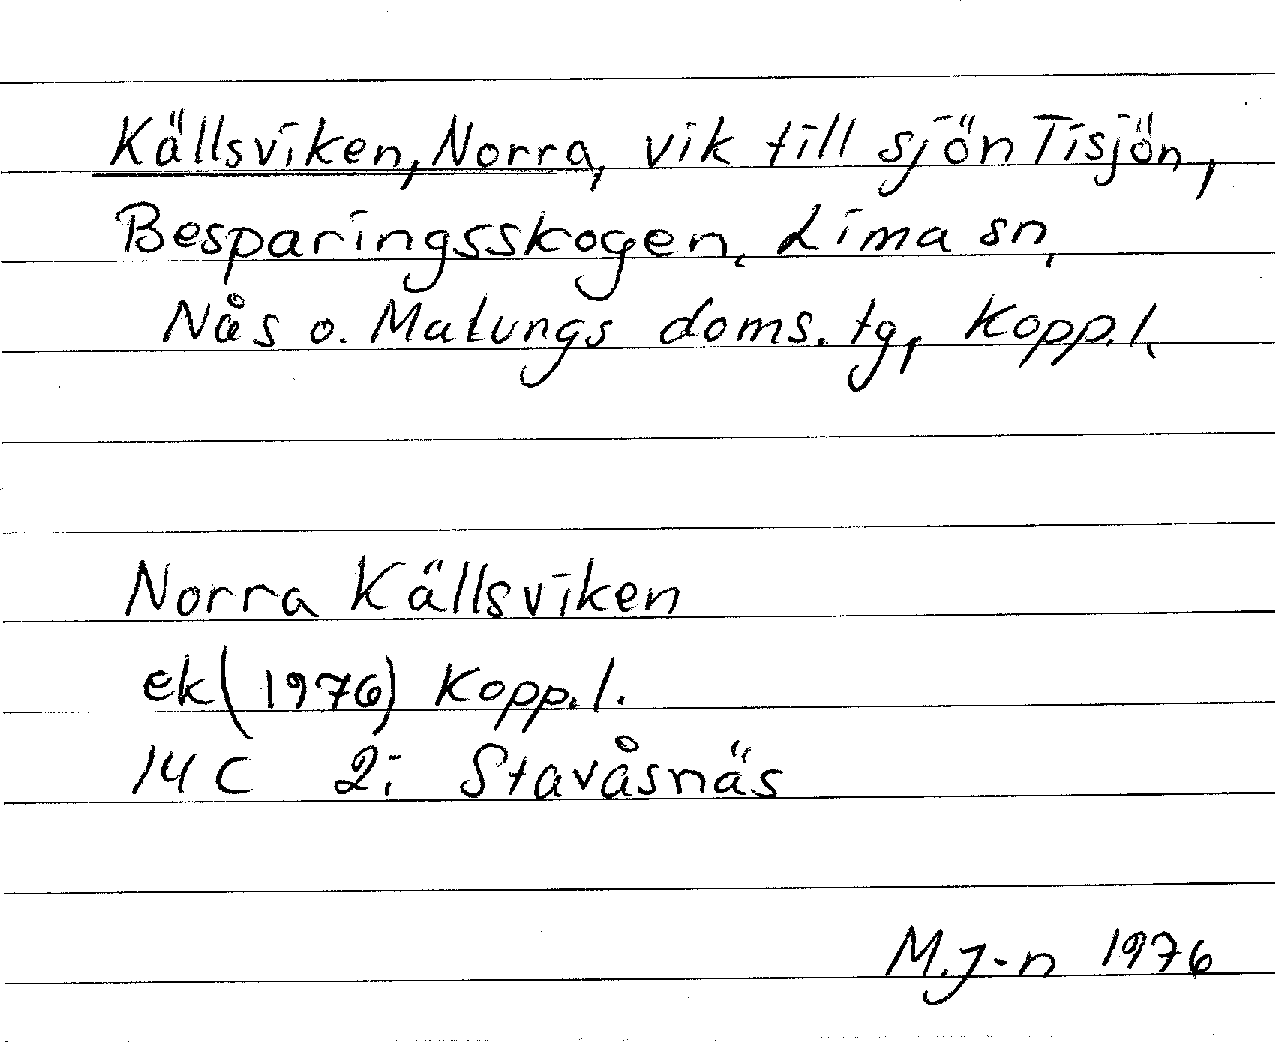 Källsviken, Norra, vik till sjön Tisjön,
Besparingsskogen, Lima sn,
Nås o. Malungs doms. tg, Kopp. l.
Norra Källsviken
ek (1976) Kopp. l.
14 C 2i Stavåsnäs
M.J-n 1976